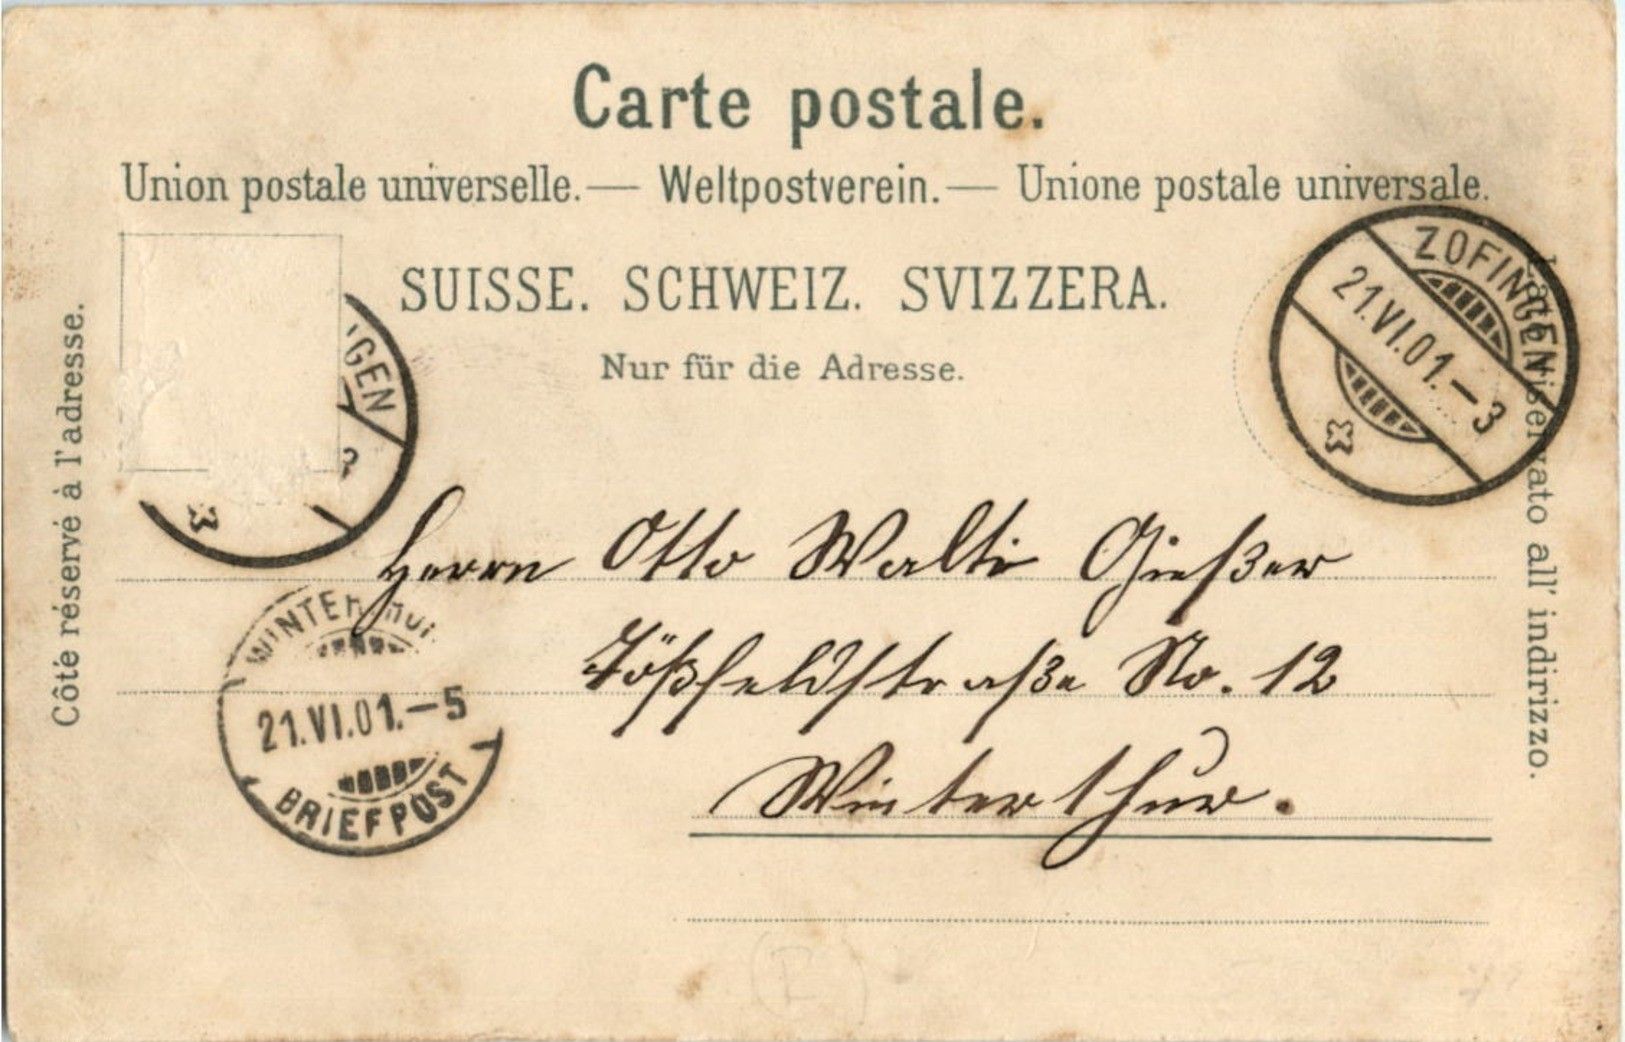 Carte postale.
Union postale universelle. — Weltpostverein. — Unione postale universale.
SUISSE. SCHWEIZ. SVIZZERA.
Nur für die Adresse.
Côté réservé à l'adresse.
riservato all' indirizzo.
ZOFINGEN
21.VI.01.-3
NGEN
Herrn Otto Walti Gießer
Tößfeldstraße No. 12
Winterthur.
WINTERTHUR
21.VI.01.-5
BRIEFPOST